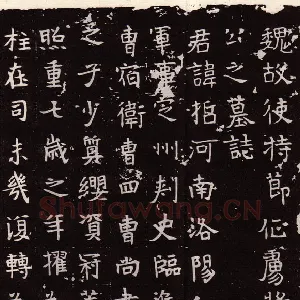 魏故使持節征虜
公之墓誌
君諱河南洛陽
軍事定州刾史臨
曹宿衛曹四曹尚
之子少纓冠
照重七歲之年擢
柱在司未幾復轉
Shufawang.CN